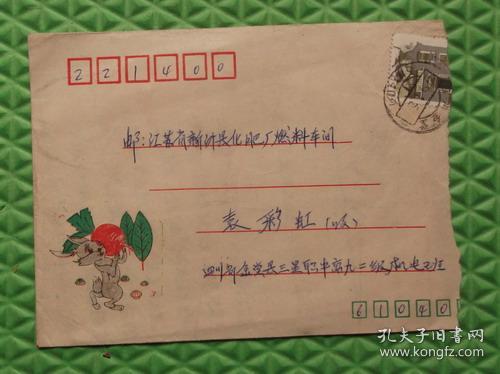 221400
邮：江苏省新沂县化肥厂燃料车间
袁彩虹（收）
四川省金堂县三星职中高九二级机电班
61040
孔夫子旧书网
www.kongfz.com